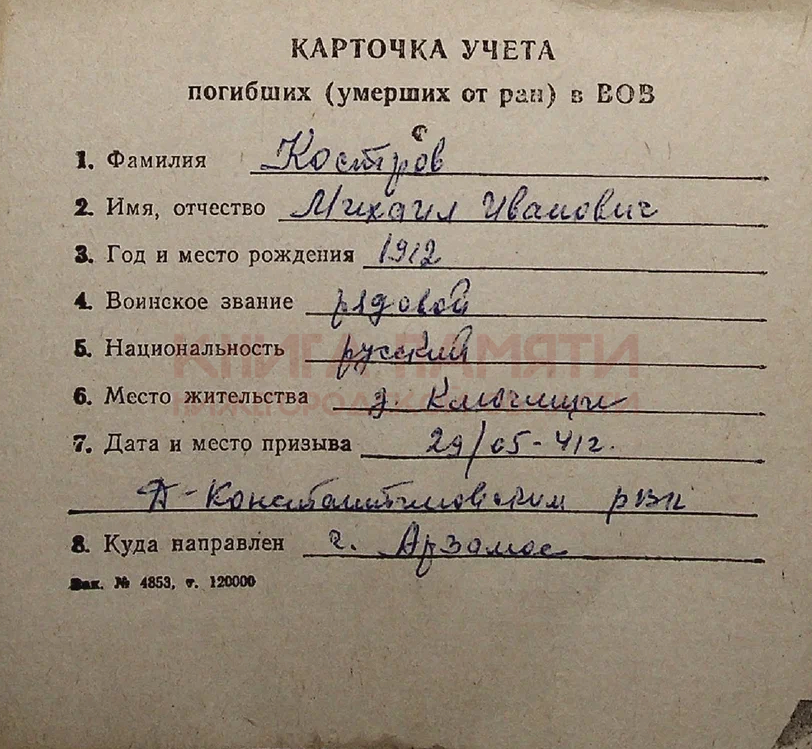 КАРТОЧКА УЧЕТА
погибших (умерших от ран) в ВОВ
1. Фамилия Костров
2. Имя, отчество Михаил Иванович
3. Год и место рождения 1912
4. Воинское звание рядовой
КНИГА ПАМЯТИ
5. Национальность русский
6. Место жительства д. Ключищи
7. Дата и место призыва 29/05-41г.
Д-Константиновским рвк
8. Куда направлен г. Арзамас
Зак. № 4853, т. 120000